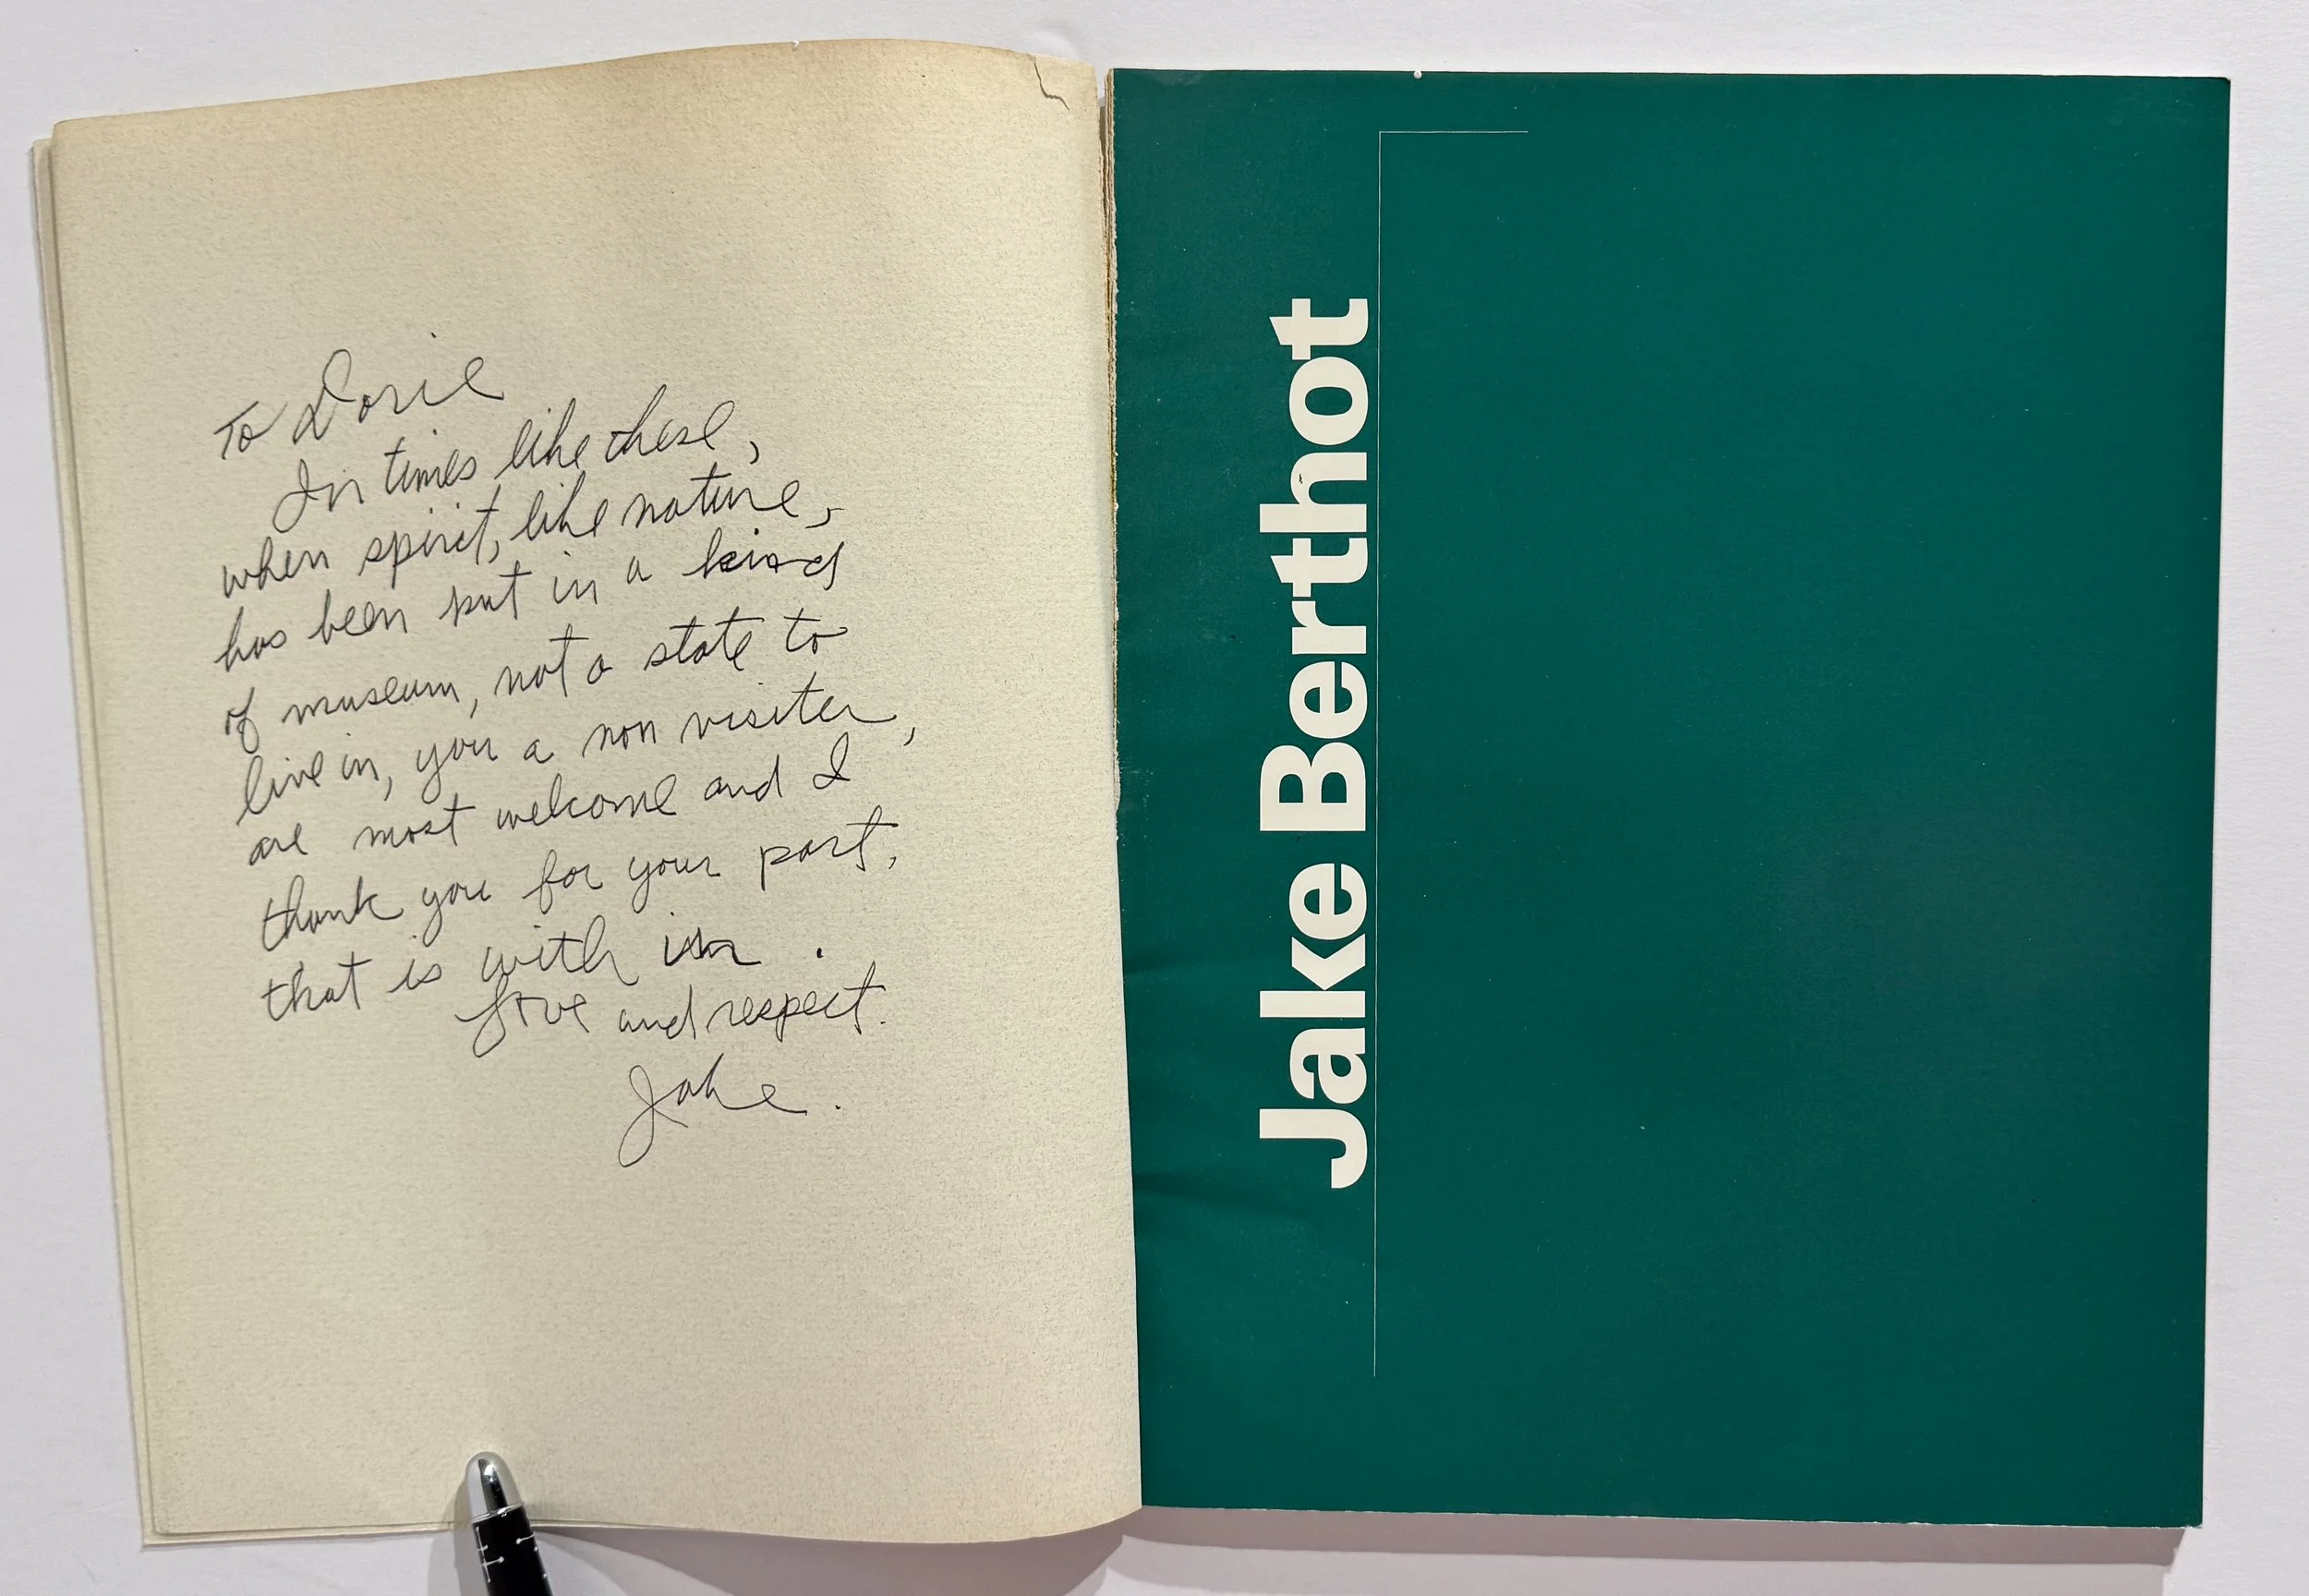 To Dorie
In times like these,
when spirit, like nature,
has been put in a kind
of museum, not a state to
live in, you a non visiter,
are most welcome and I
thank you for your part,
that is with in .
Love and respect.
Jake.
Jake Berthot